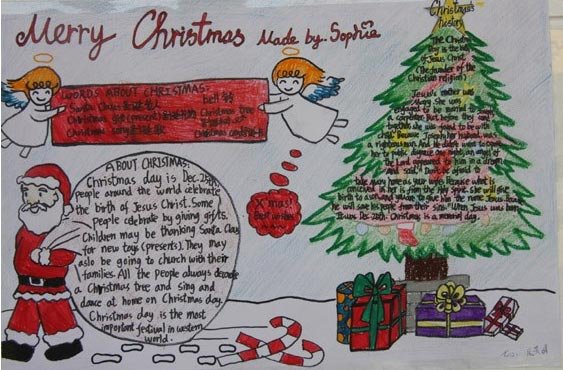 Merry Christmas Made by. Sophia
WORDS ABOUT CHRISTMAS:
Santa Claus 圣诞老人
bell 铃
Christmas gift (present) 圣诞礼物
Christmas tree
圣诞树
Christmas song 圣诞歌
Christmas card
ABOUT CHRISTMAS:
Christmas day is Dec.25th.
people around the world celebrate
the birth of Jesus Christ. Some
people celebrate by giving gifts.
Children may be thanking Santa Clay
for new toys (presents). They may
aslo be going to church with their
families. All the people always decorate
a Christmas tree and sing and
dance at home on Christmas day.
Christmas day is the most
important festival in western
world.
X'mas!
Best wishes
Christmas's
history
The Christ
Day is the birth
of Jesus Christ
(The founder of the
Christian religion)
Jesus's mother was
Mary. She was
to be married to
a carpenter. But before they
she was found to be with
child
a righteous man. And he didn't want to expose
her to public disgrace. an angel of
the Lord appeared to him in a dream
and said," Don't be afraid to
take Mary home as your wife. Because what is
conceived in her is from the Holy She will give
birth to a son and you are to give him the name Jesus. Because
he will save his people from their sins." When Jesus was born
Dec. 25th. Christmas is a memorial day.